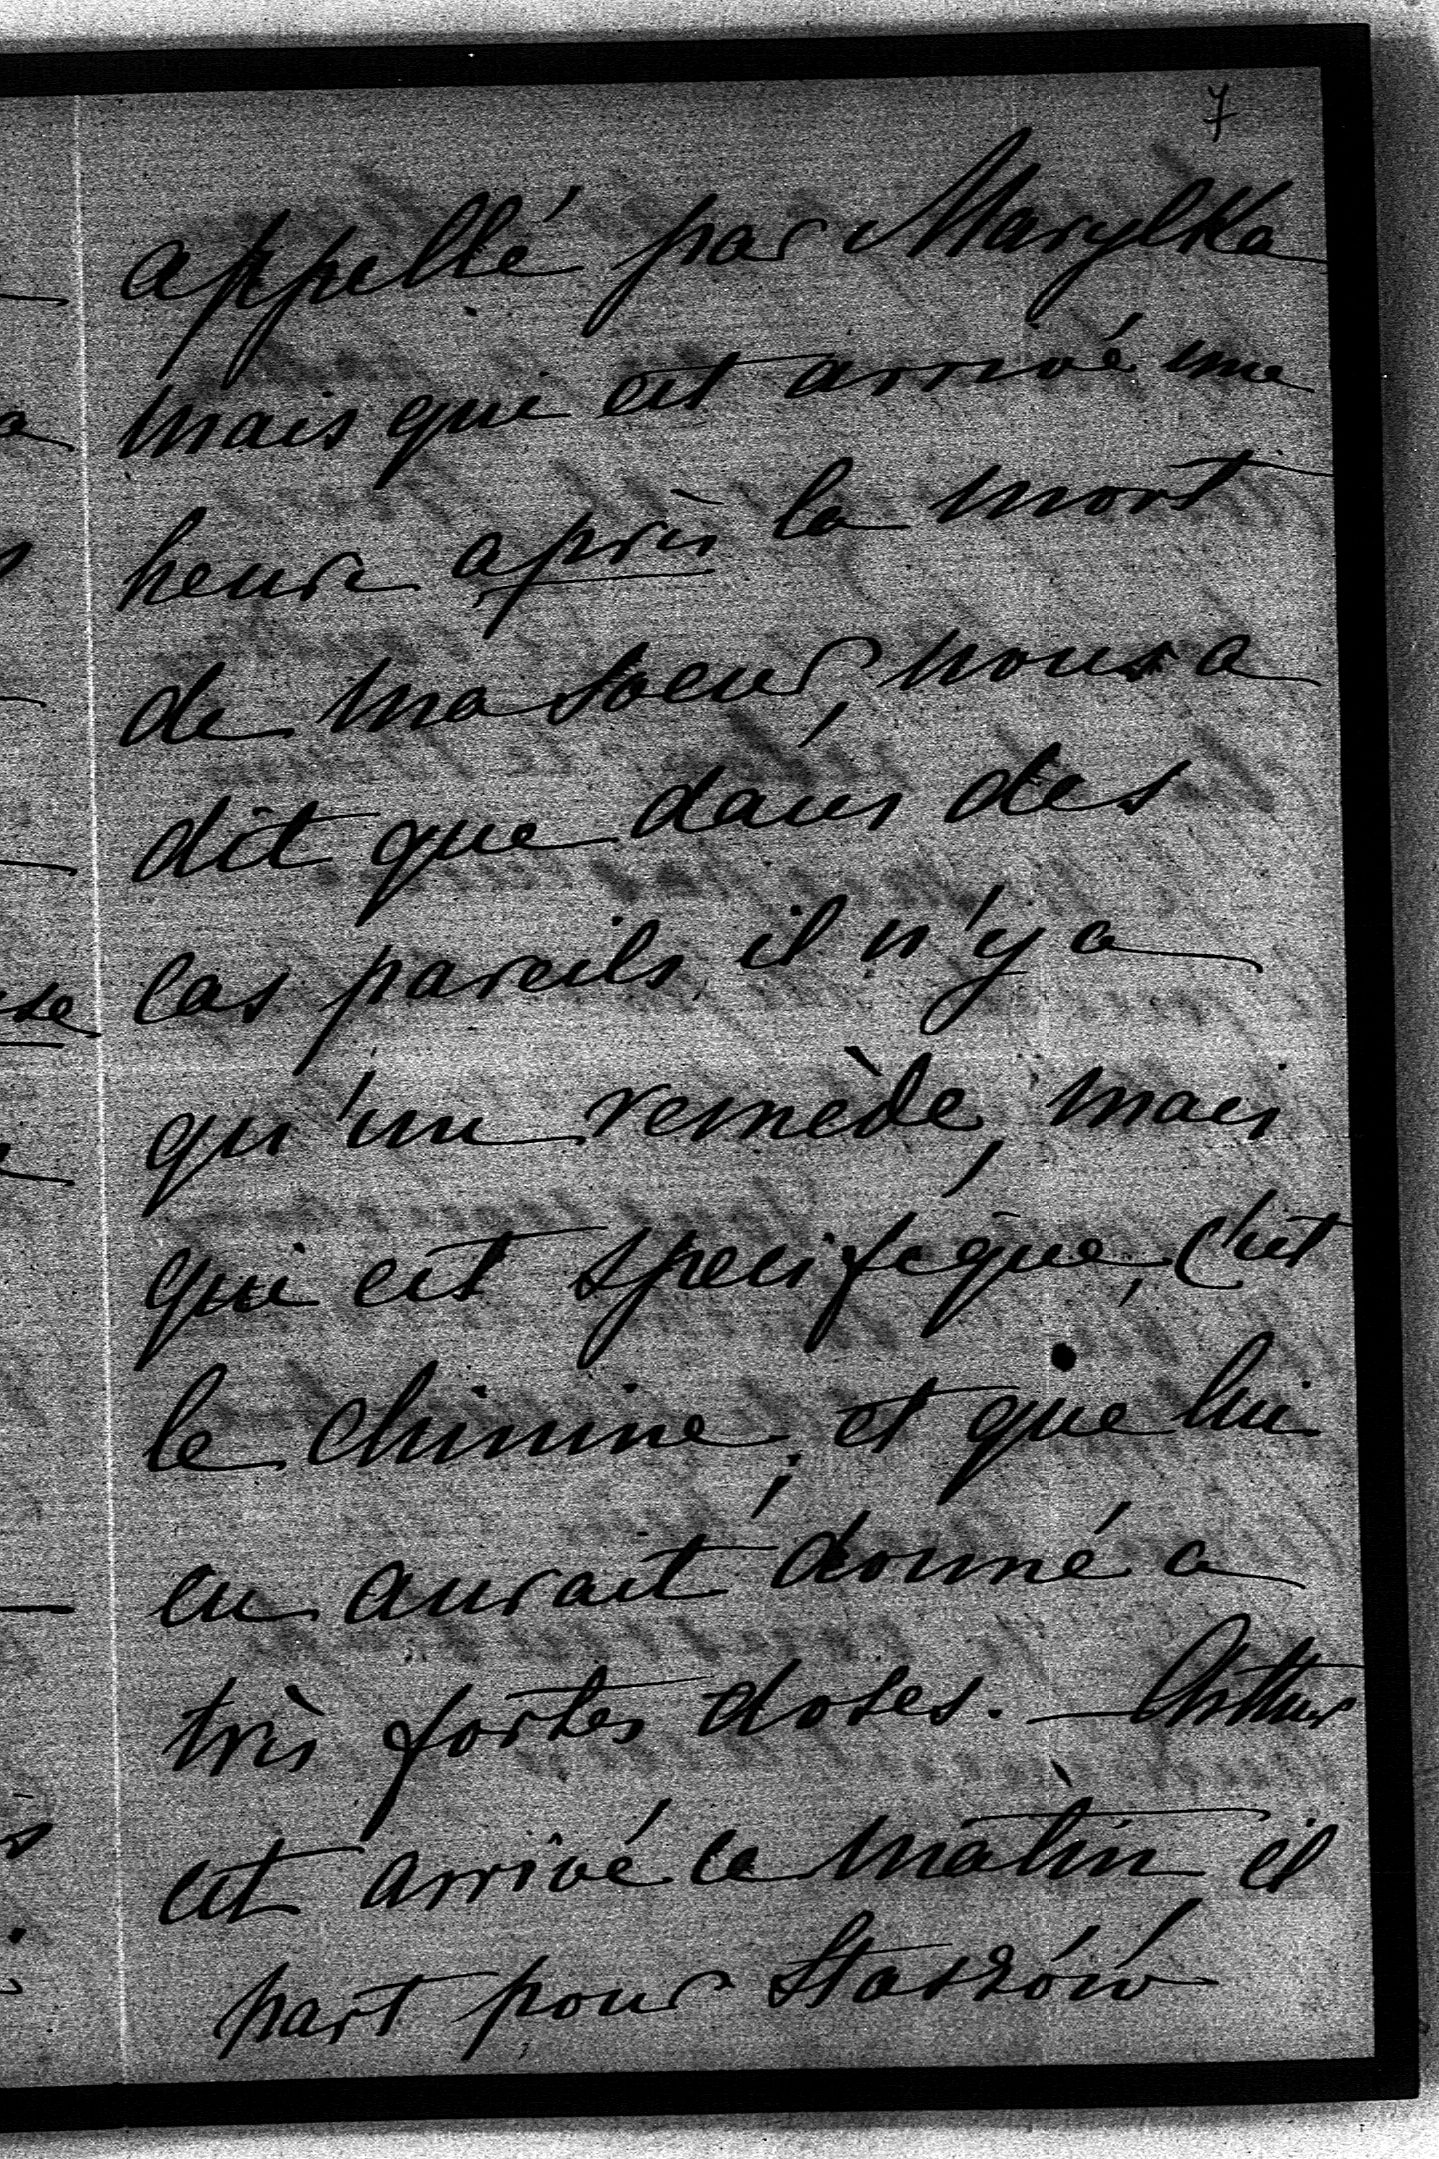 7
appellé par Marylka
mais qui est arrivé une
heure après la mort
de ma soeur, nous a
dit que dans des
cas pareils, il n'y a
qu'un remède, mais
qui est specifique, c'est
le chinine, et que lui
en aurait donné a
très fortes doses. — Arthur
est arrivé ce matin, il
part pour Staszów